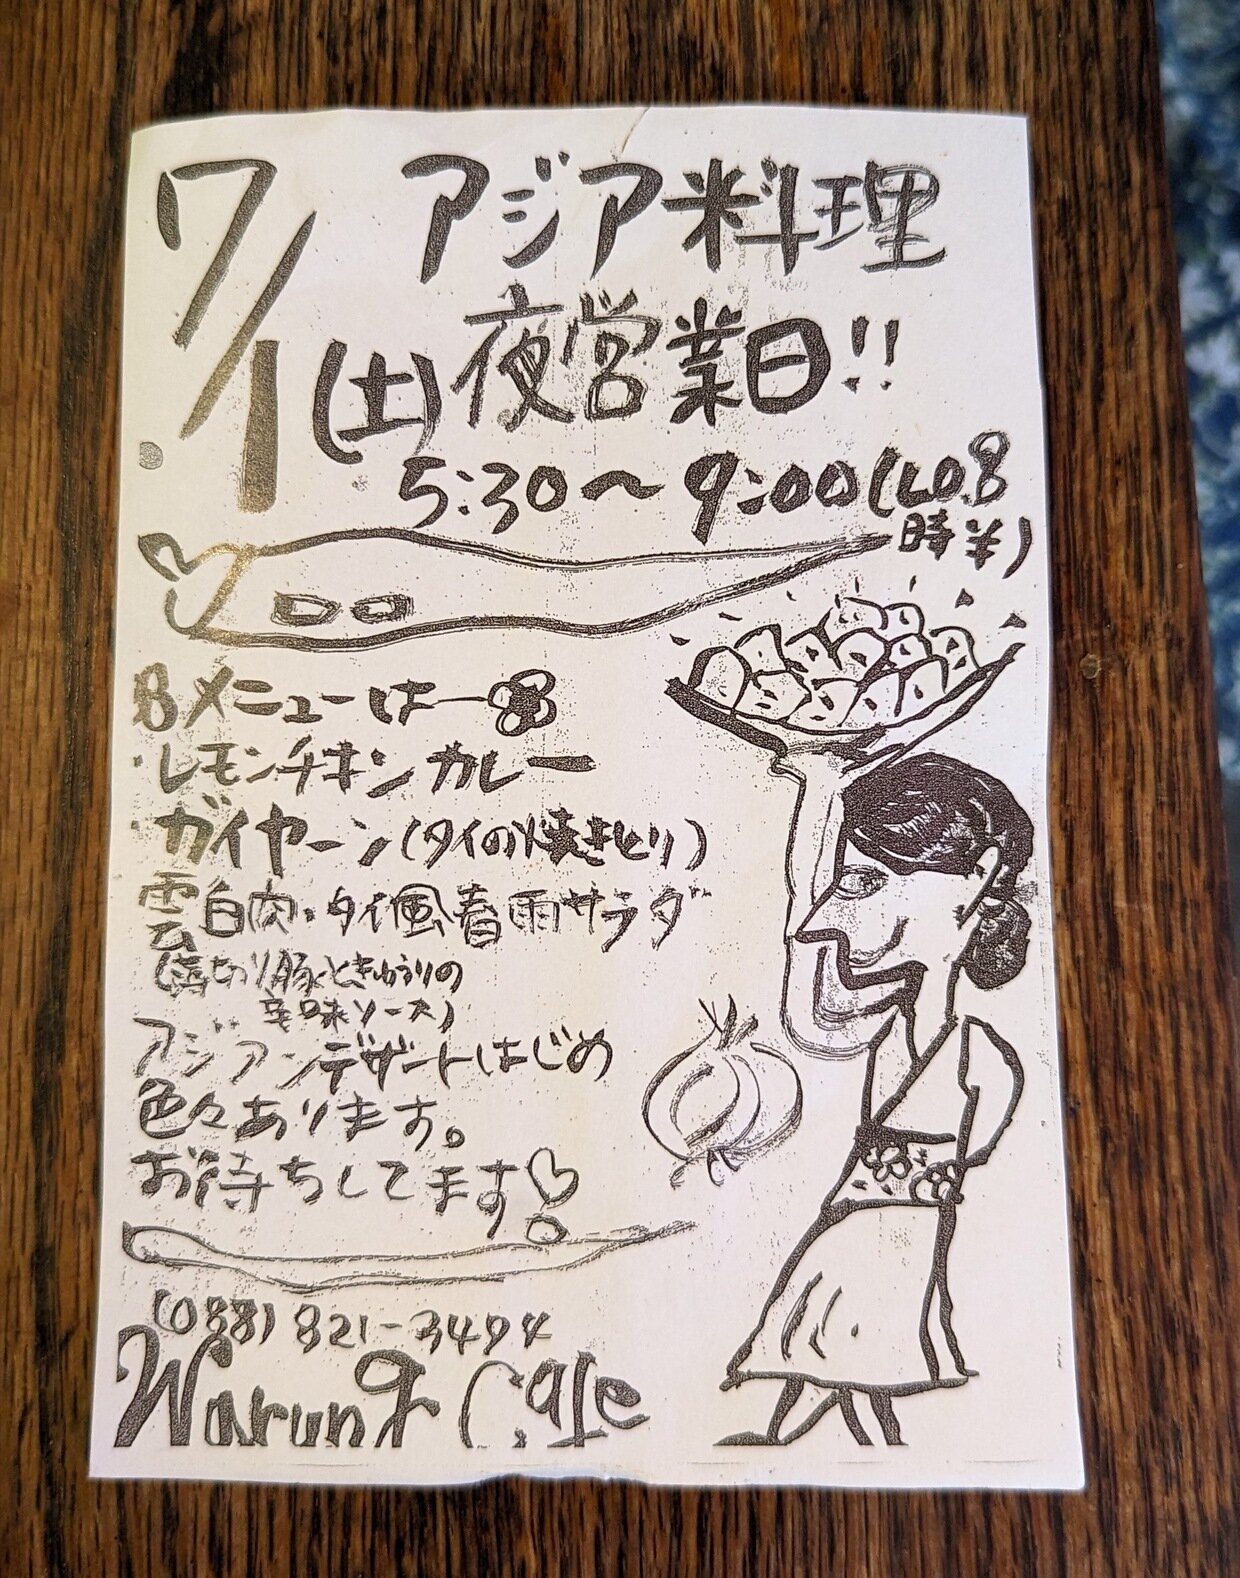 7/1(土)
アジア料理
夜営業日!!
5:30〜9:00(LO.8
時半)
メニューは一
・レモンチキンカレー
・ガイヤーン(タイの焼きとり)
雲白肉・タイ風春雨サラダ
(薄切り豚ときゅうりの
辛味ソース)
アジアンデザートはじめ
色々あります。
お待ちしてます♡
(088)821-3494
Warung Cafe